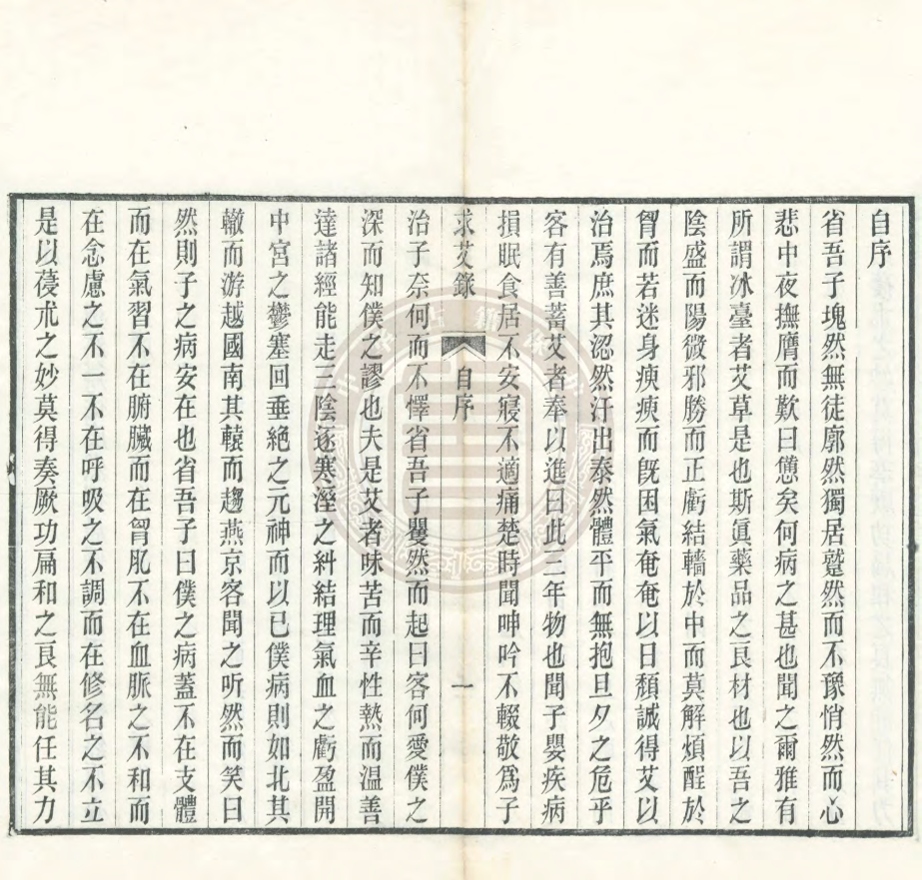 自序
省吾子塊然無徒廓然獨居蹙然而不豫悄然而心
悲中夜撫膺而歎曰憊矣何病之甚也聞之爾雅有
所謂冰臺者艾草是也斯眞藥品之良材也以吾之
陰盛而陽微邪勝而正虧結轖於中而莫解煩酲於
胷而若迷身瘐瘐而旣困氣奄奄以日頹誠得艾以
治焉庶其涊然汗出泰然體平而無抱旦夕之危乎
客有善蓄艾者奉以進曰此三年物也聞子嬰疾病
損眠食居不安寢不適痛楚時聞呻吟不輟敬爲子
求艾錄
自序
一
治子奈何而不懌省吾子矍然而起曰客何愛僕之
深而知僕之謬也夫是艾者味苦而辛性熱而温善
達諸經能走三陰逐寒溼之糾結理氣血之虧盈開
中宮之鬱塞回垂絶之元神而以已僕病則如北其
轍而游越國南其轅而趨燕京客聞之听然而笑曰
然則子之病安在也省吾子曰僕之病蓋不在支體
而在氣習不在腑臟而在胷肊不在血脈之不和而
在念慮之不一不在呼吸之不調而在修名之不立
是以葠朮之妙莫得奏厥功扁和之良無能任其力